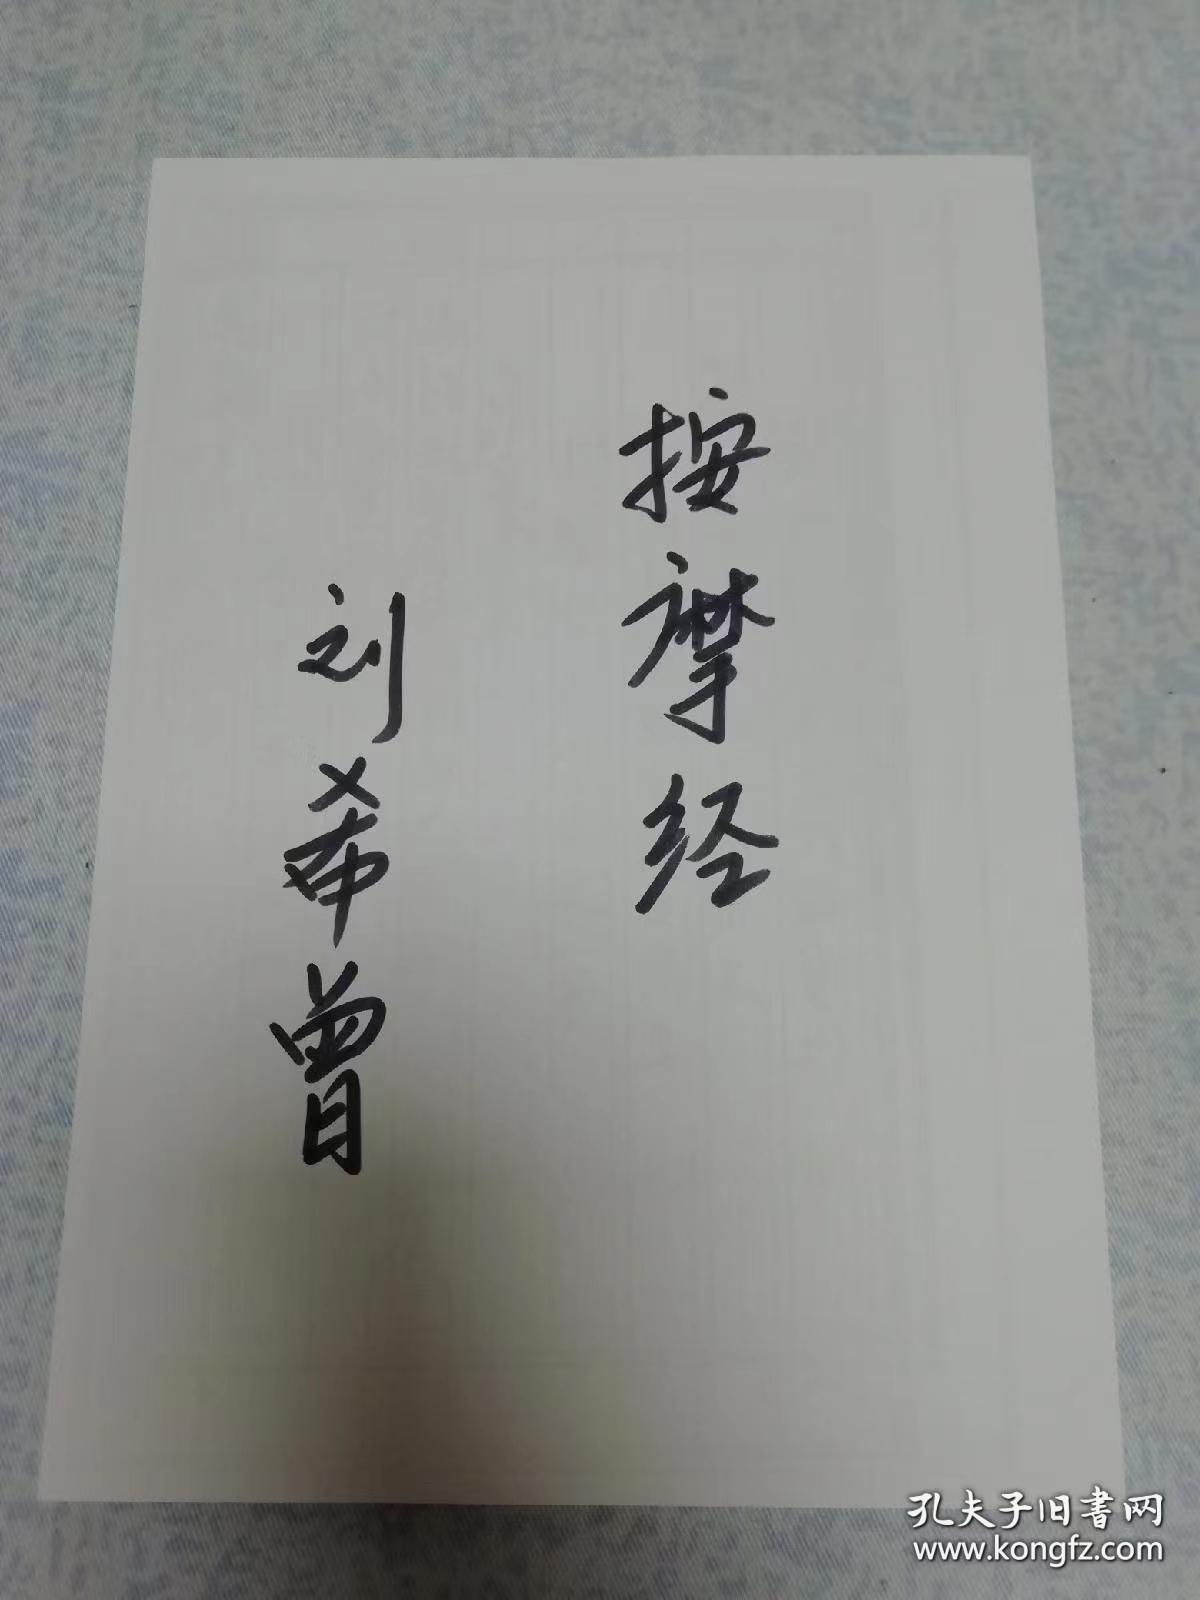 按摩经
刘希曾
孔夫子旧書网
www.kongfz.com